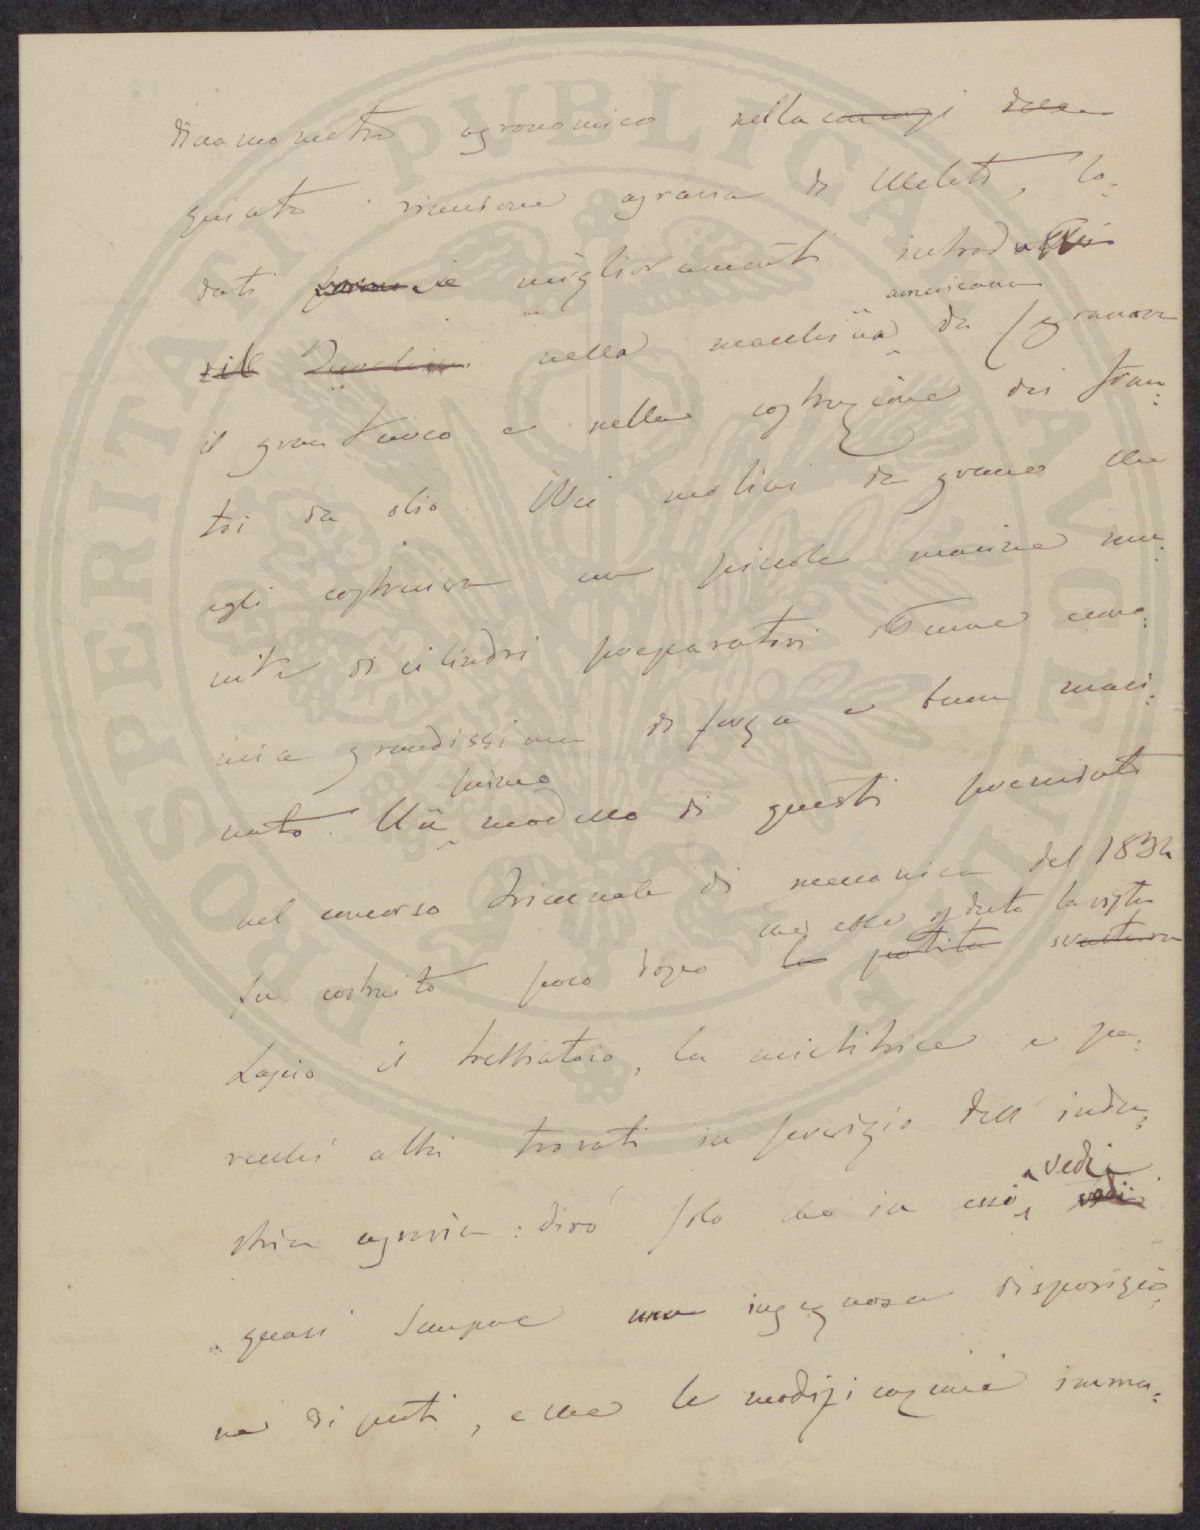 dinamometro agronomico nella
quinta riunione agraria di Meleto, lo-
dati i miglioramenti introdotti
americana
nella macchina da sgranare
il gran turco e nella costruzione dei fran-
toi da olio. Nei molini da grano che
egli costruiva con piccole macine mu-
nite di cilindri preparatori ottenne econo-
mia grandissima di forza e buon maci-
primo
nato. Un modello di questi premiato
nel concorso triennale di meccanica del 1832
fu costruito poco dopo
Lascio il trebbiatoio, la mietitrice e pa-
recchi altri trovati in servizio dell'indu-
vedi
stria agraria: dirò solo che in essi
quasi sempre una ingegnosa disposizio-
ne di parti, e che le modificazioni imma-